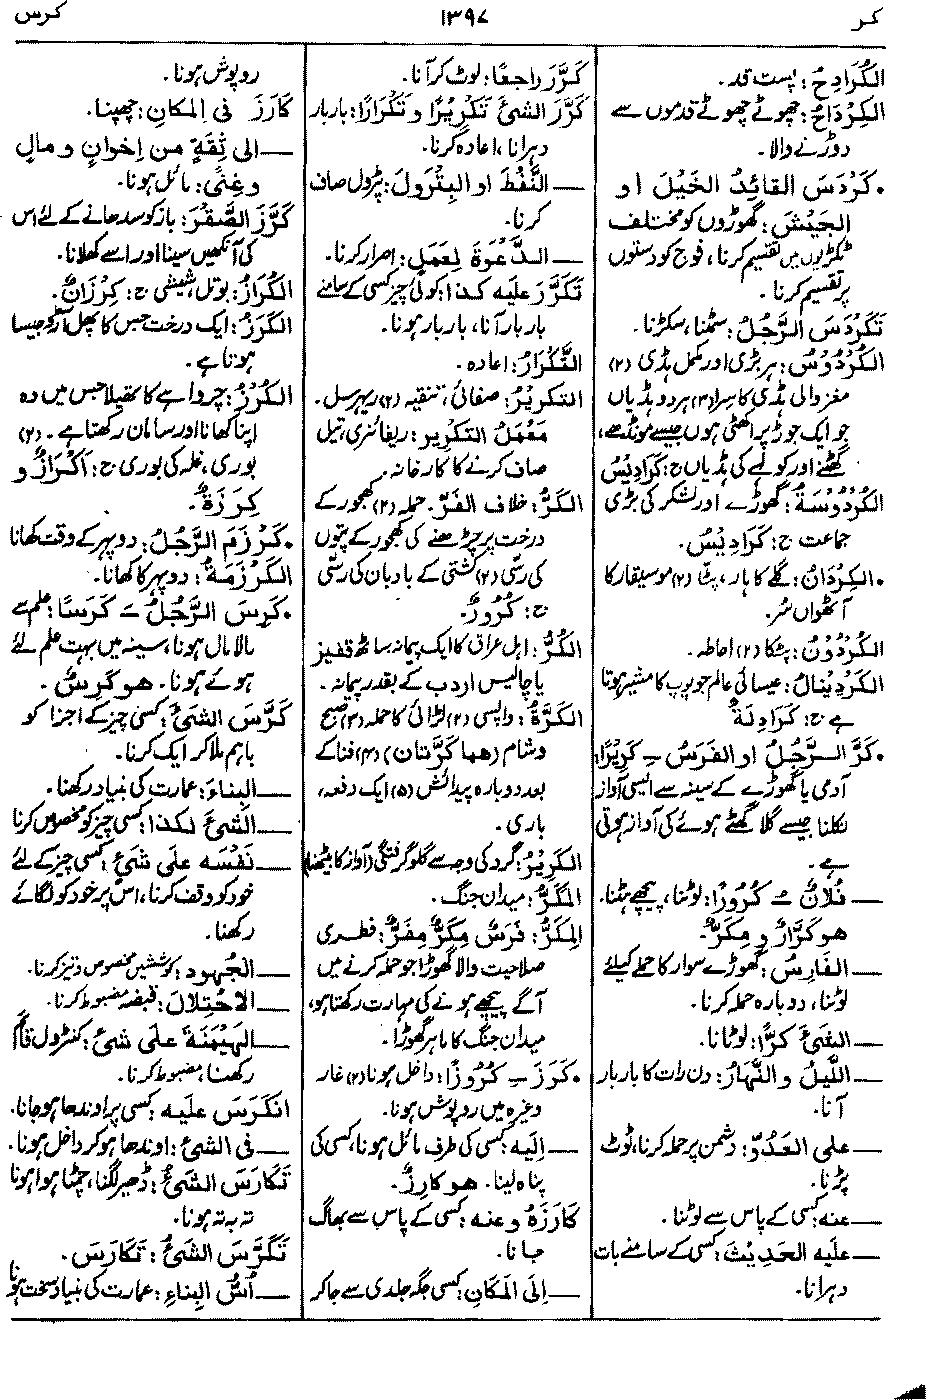 کر
۱۳۹۷
کرس
الكُرَادِحُ: پست قد۔
الكِرْدَاحُ: چھوٹے چھوٹے قدموں سے
دوڑنے والا۔
• كَرْدَسَ القائِدُ الخَيْلَ او
الجَيْشَ: گھوڑوں کو مختلف
ٹکڑیوں میں تقسیم کرنا، فوج کو دستوں
پر تقسیم کرنا۔
تَكَرْدَسَ الرَّجُلُ: سمٹنا، سکڑنا۔
الكُرْدُوْسُ: ہر بڑی اور مکمل ہڈی (۲)
مغز والی ہڈی کا سرا (۳) ہر دو ہڈیاں
جو ایک جوڑ پر اکٹھی ہوں جیسے مونڈھے،
گھٹنے اور کولہے کی ہڈیاں ج: كَرَادِيْسُ
الكُرْدُوْسَةُ: گھوڑے اور لشکر کی بڑی
جماعت ج: كَرَادِيْسُ۔
• الكِرْدَانُ: گلے کا ہار، پٹا (۲) موسیقار کا
آٹھواں سُر۔
الكُرْدُوْنُ: پٹکا (۲) احاطہ۔
الكَرْدِيْنَالُ: عیسائی عالم جو پوپ کا مشیر ہوتا
ہے ج: كَرَادِلَةٌ
• كَرَّ الرَّجُلُ او الفَرَسُ ــِـ كَرِيْرًا:
آدمی یا گھوڑے کے سینہ سے ایسی آواز
نکلنا جیسے گلا گھٹے ہوئے کی آواز ہوتی
ہے۔
— فُلانٌ ــُـ كُرُوْرًا: لوٹنا، پیچھے ہٹنا۔
هو كَرَّارٌ و مِكَرٌّ۔
— الفَارِسُ: گھوڑے سوار کا حملے کیلئے
لوٹنا، دوبارہ حملہ کرنا۔
— الشئَ كَرًّا: لوٹانا۔
— اللَّيلُ والنَّهارُ: دن رات کا بار بار
آنا۔
— على العَدُوِّ: دشمن پر حملہ کرنا، ٹوٹ
پڑنا۔
— عنه: کسی کے پاس سے لوٹنا۔
— عليه الحَدِيْثَ: کسی کے سامنے بات
دہرانا۔
كَرَّرَ راجعًا: لوٹ کر آنا۔
كَرَّرَ الشئَ تَكْرِيْرًا و تَكْرَارًا: بار بار
دہرانا، اعادہ کرنا۔
— النَّفْطَ او البِتْرُوْلَ: پٹرول صاف
کرنا۔
— الدَّعْوَةَ لِعَمَلٍ: اصرار کرنا۔
تَكَرَّرَ عليه كذا: کوئی چیز کسی کے سامنے
بار بار آنا، بار بار ہونا۔
التَّكْرَارُ: اعادہ۔
التكرِيْرُ: صفائی، تنقیہ (۲) ریہرسل۔
مَعْمَلُ التكرِيرِ: ریفائنری، تیل
صاف کرنے کا کارخانہ۔
الكَرُّ: خلاف الفَرّ۔ حملہ (۲) کھجور کے
درخت پر چڑھنے کی کھجور کے پتوں
کی رسّی (۲) کشتی کے بادبان کی رسّی
ج: كُرُوْرٌ۔
الكُرُّ: اہل عراق کا ایک پیمانہ ساٹھ قفیز
یا چالیس اردب کے بقدر پیمانہ۔
الكَرَّةُ: واپسی (۲) لڑائی کا حملہ (۳) صبح
و شام (هما كَرَّتان) (۴) فنا کے
بعد دوبارہ پیدائش (۵) ایک دفعہ،
باری۔
الكَرِيْرُ: گرد کی وجہ سے گلو گرفتگی (آواز کا بیٹھنا)
المَكَرُّ: میدان جنگ۔
المِكَرُّ: فَرَسٌ مِكَرٌّ مِفَرٌّ: فطری
صلاحیت والا گھوڑا جو حملہ کرنے میں
آگے پیچھے ہونے کی مہارت رکھتا ہو،
میدان جنگ کا ماہر گھوڑا۔
• كَرَزَ ــِـ كُرُوْزًا: داخل ہونا (۲) غار
وغیرہ میں روپوش ہونا۔
— إليه: کسی کی طرف مائل ہونا، کسی کی
پناہ لینا۔ هو كارِزٌ۔
كارَزَهُ وعنه: کسی کے پاس سے بھاگ
جانا۔
— إلى المَكانِ: کسی جگہ جلدی سے جا کر
روپوش ہونا۔
كَارَزَ فى المكانِ: چھپنا۔
— الى ثِقَةٍ من إخوانٍ و مالٍ
و غِنًى: مائل ہونا۔
كَرَّزَ الصَّقْرَ: باز کو سدھانے کے لئے اس
کی آنکھیں سینا اور اسے کھلانا۔
الكُرَازُ: بوتل، شیشی ج: كِرْزَانٌ۔
الكَرَزُ: ایک درخت جس کا پھل آلوچہ جیسا
ہوتا ہے۔
الكُرْزُ: چرواہے کا تھیلا جس میں وہ
اپنا کھانا اور سامان رکھتا ہے۔ (۲)
بوری، غلہ کی بوری ج: اَكْرَازٌ و
كِرَزَةٌ۔
• كَرْزَمَ الرَّجُلُ: دوپہر کے وقت کھانا
الكَرْزَمَةُ: دوپہر کا کھانا۔
• كَرِسَ الرَّجُلُ ــَـ كَرَسًا: علم سے
مالا مال ہونا، سینہ میں بہت علم لئے
ہوئے ہونا۔ هو كَرِسٌ۔
كَرَّسَ الشئَ: کسی چیز کے اجزا کو
باہم ملا کر ایک کرنا۔
— البِناءَ: عمارت کی بنیاد رکھنا۔
— الشئَ لكذا: کسی چیز کو مخصوص کرنا
— نَفْسَه على شئٍ: کسی چیز کے لئے
خود کو وقف کرنا، اس پر خود کو لگائے
رکھنا۔
— الجُهودَ: کوششیں مخصوص و تیز کرنا۔
— الاحْتِلالَ: قبضہ مضبوط کرنا۔
— الهَيْمَنَةَ على شئٍ: کنٹرول قائم
رکھنا، مضبوط کرنا۔
انكَرَسَ عليه: کسی پر اوندھا ہو جانا۔
— فى الشئِ: اوندھا ہو کر داخل ہونا۔
تَكَارَسَ الشئُ: ڈھیر لگنا، چمٹا ہوا ہونا
تہ بہ تہ ہونا۔
تَكَرَّسَ الشئُ: تَكَارَسَ۔
— اُسُّ البِناءِ: عمارت کی بنیاد سخت ہونا